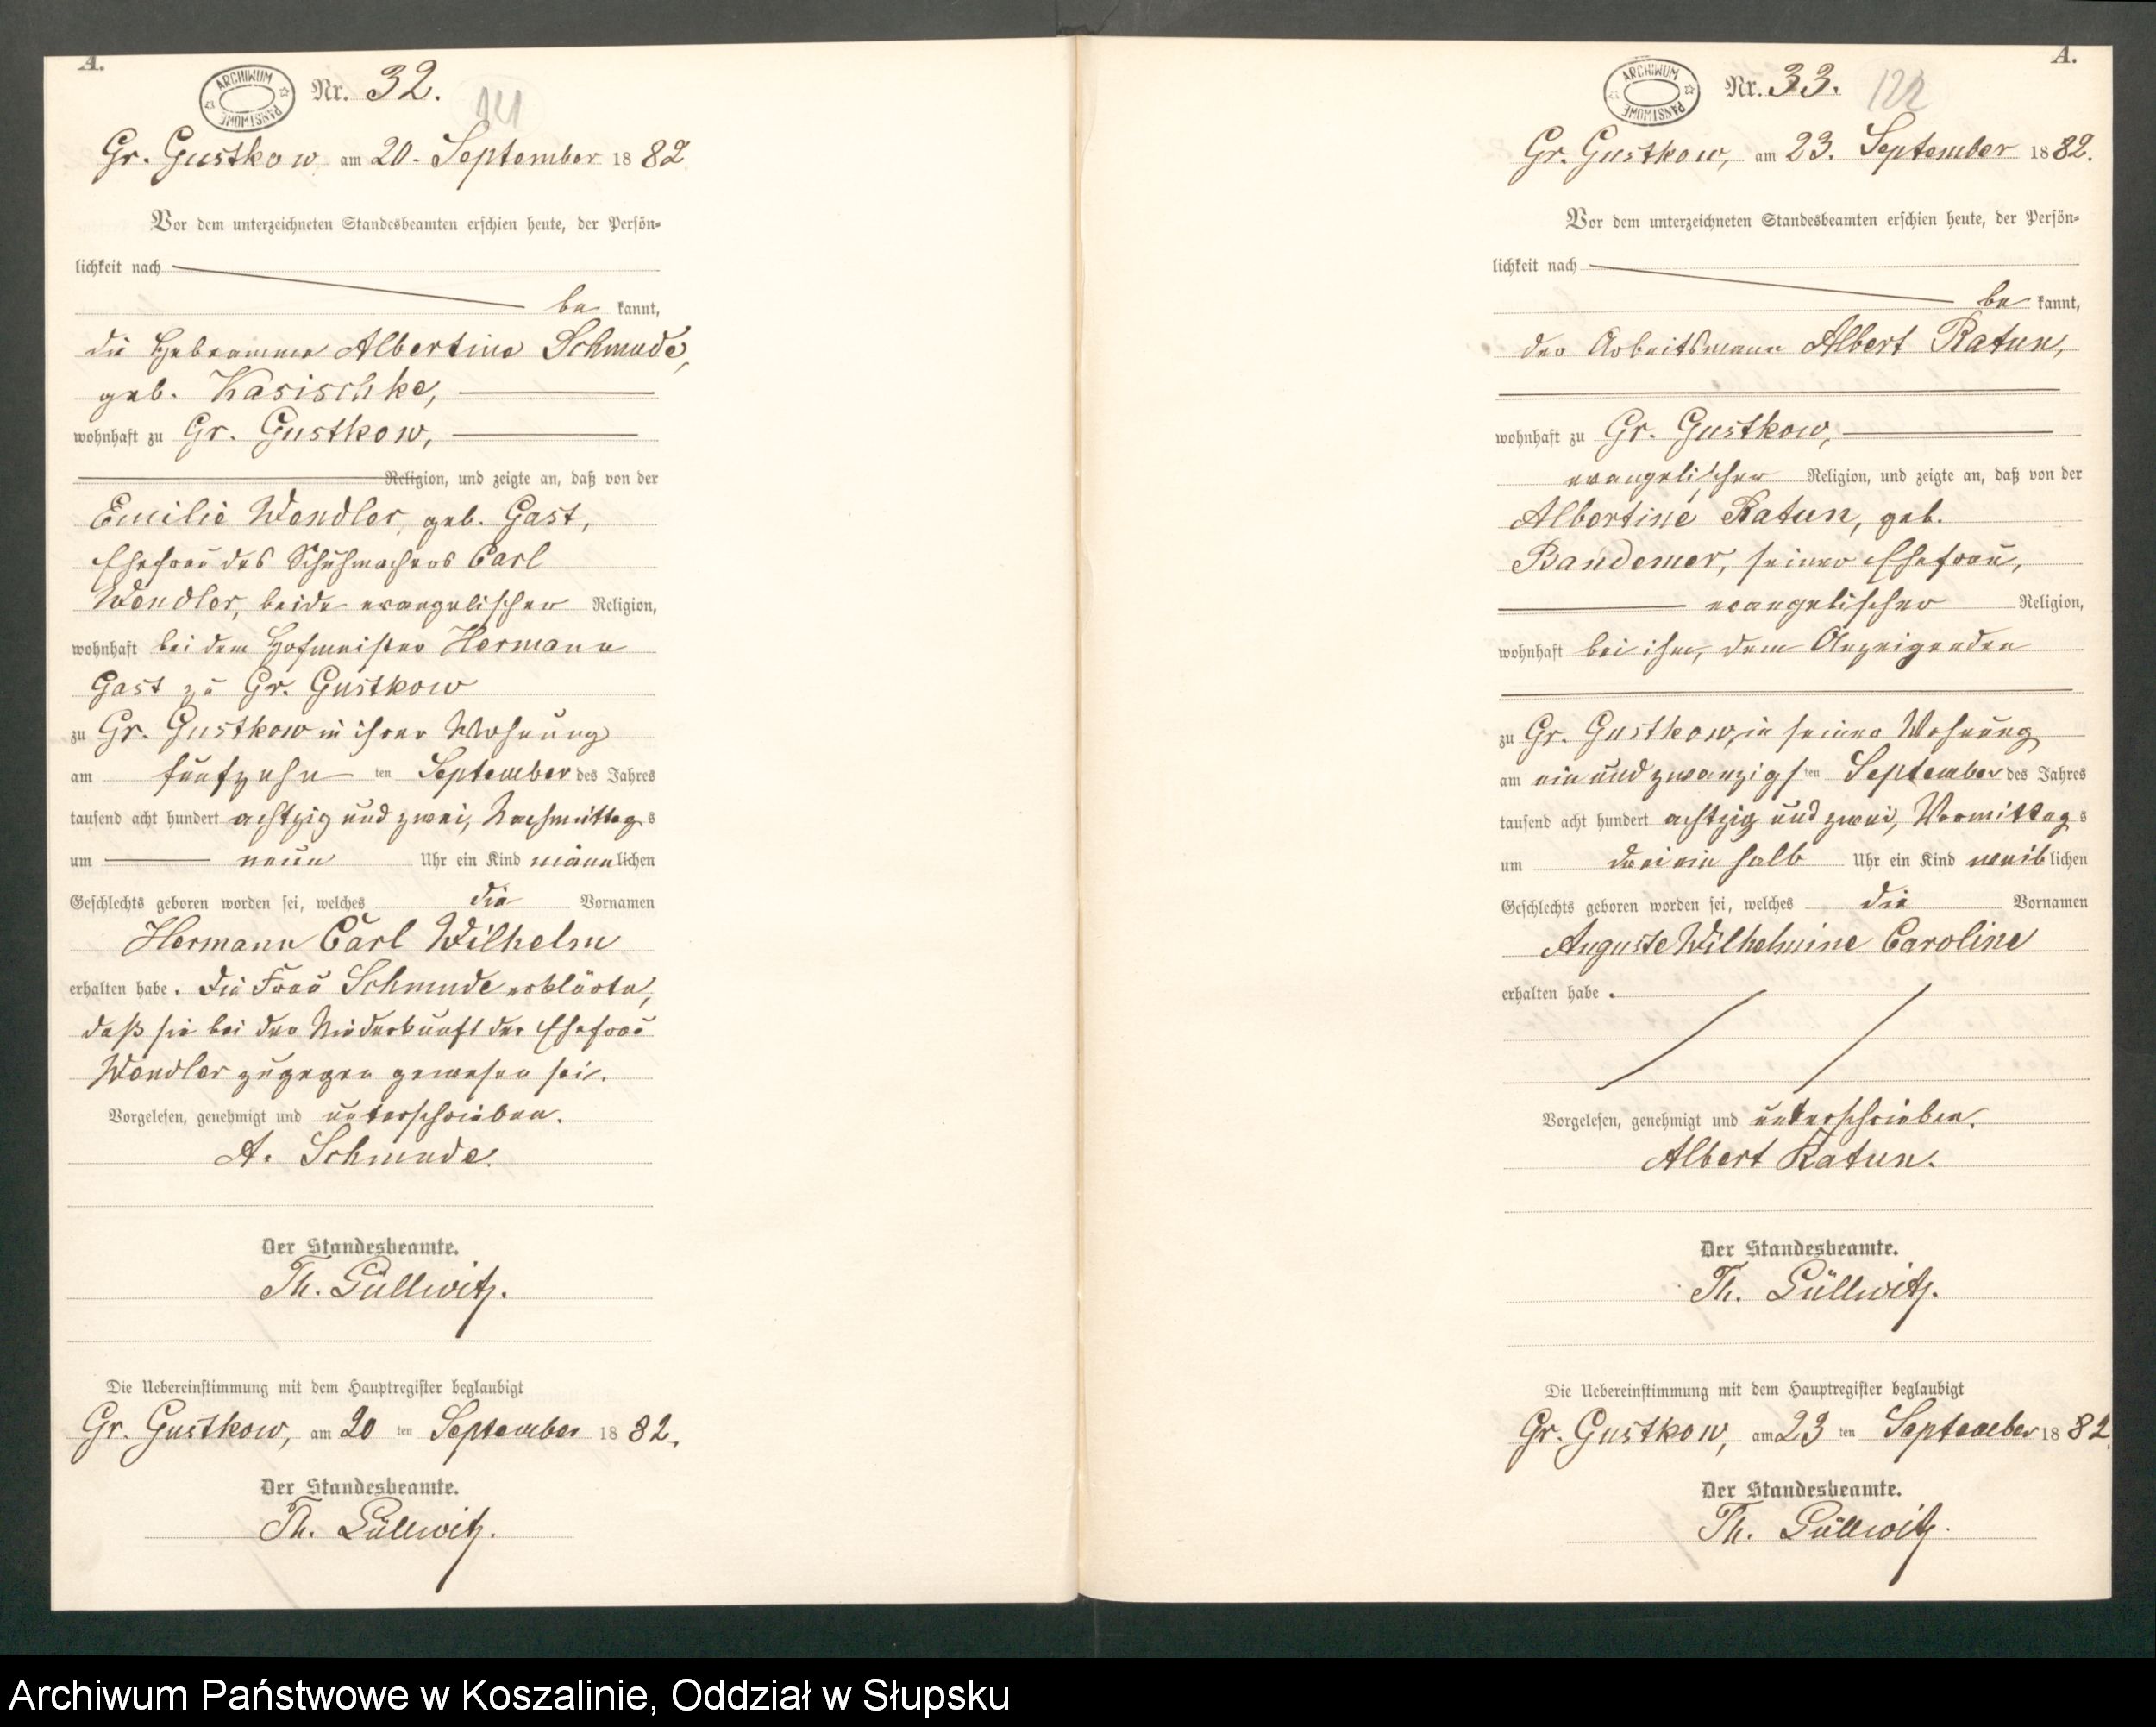 A.
ARCHIWUM PAŃSTWOWE
Nr. 32.
Gr. Gustkow am 20. September 1882
Vor dem unterzeichneten Standesbeamten erschien heute, der Persön-
lichkeit nach
be kannt,
die Hebeamme Albertine Schmude,
geb. Kasischke,
wohnhaft zu Gr. Gustkow,
Religion, und zeigte an, daß von der
Emilie Wendler, geb. Gast,
Ehefrau des Schuhmachers Carl
Wendler, beide evangelischer Religion,
wohnhaft bei dem Hofmeister Hermann
Gast zu Gr. Gustkow
zu Gr. Gustkow in ihrer Wohnung
am fünfzehn ten September des Jahres
tausend acht hundert achtzig und zwei, Nachmittags
um neun Uhr ein Kind männlichen
Geschlechts geboren worden sei, welches die Vornamen
Hermann Carl Wilhelm
erhalten habe. Die Frau Schmude erklärte,
daß sie bei der Niederkunft der Ehefrau
Wendler zugegen gewesen sei.
Vorgelesen, genehmigt und unterschrieben.
A. Schmude.
Der Standesbeamte.
Th. Güllwitz.
Die Uebereinstimmung mit dem Hauptregister beglaubigt
Gr. Gustkow, am 20 ten September 1882.
Der Standesbeamte.
Th. Güllwitz.
A.
ARCHIWUM PAŃSTWOWE
Nr. 33. 122
Gr. Gustkow, am 23. September 1882.
Vor dem unterzeichneten Standesbeamten erschien heute, der Persön-
lichkeit nach
be kannt,
der Arbeitsmann Albert Ratun,
wohnhaft zu Gr. Gustkow,
evangelischer Religion, und zeigte an, daß von der
Albertine Ratun, geb.
Bandemer, seiner Ehefrau,
evangelischer Religion,
wohnhaft bei ihm, dem Anzeigenden
zu Gr. Gustkow, in seiner Wohnung
am ein und zwanzigs ten September des Jahres
tausend acht hundert achtzig und zwei, Vormittags
um drei ein halb Uhr ein Kind weiblichen
Geschlechts geboren worden sei, welches die Vornamen
Auguste Wilhelmine Caroline
erhalten habe.
Vorgelesen, genehmigt und unterschrieben.
Albert Ratun.
Der Standesbeamte.
Th. Güllwitz.
Die Uebereinstimmung mit dem Hauptregister beglaubigt
Gr. Gustkow, am 23 ten September 1882.
Der Standesbeamte.
Th. Güllwitz.
Archiwum Państwowe w Koszalinie, Oddział w Słupsku